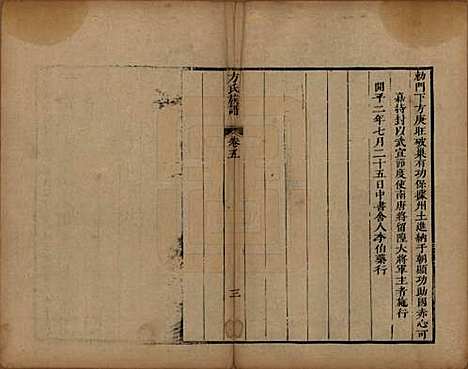 勅門下方庚旺破巢有功保據州土進納于朝顯功助國赤心可
嘉特封以武宣節度使南唐將留隍大將軍主者施行
開平二年七月二十五日中書舍人李伯藥行
方氏族譜
卷五
三